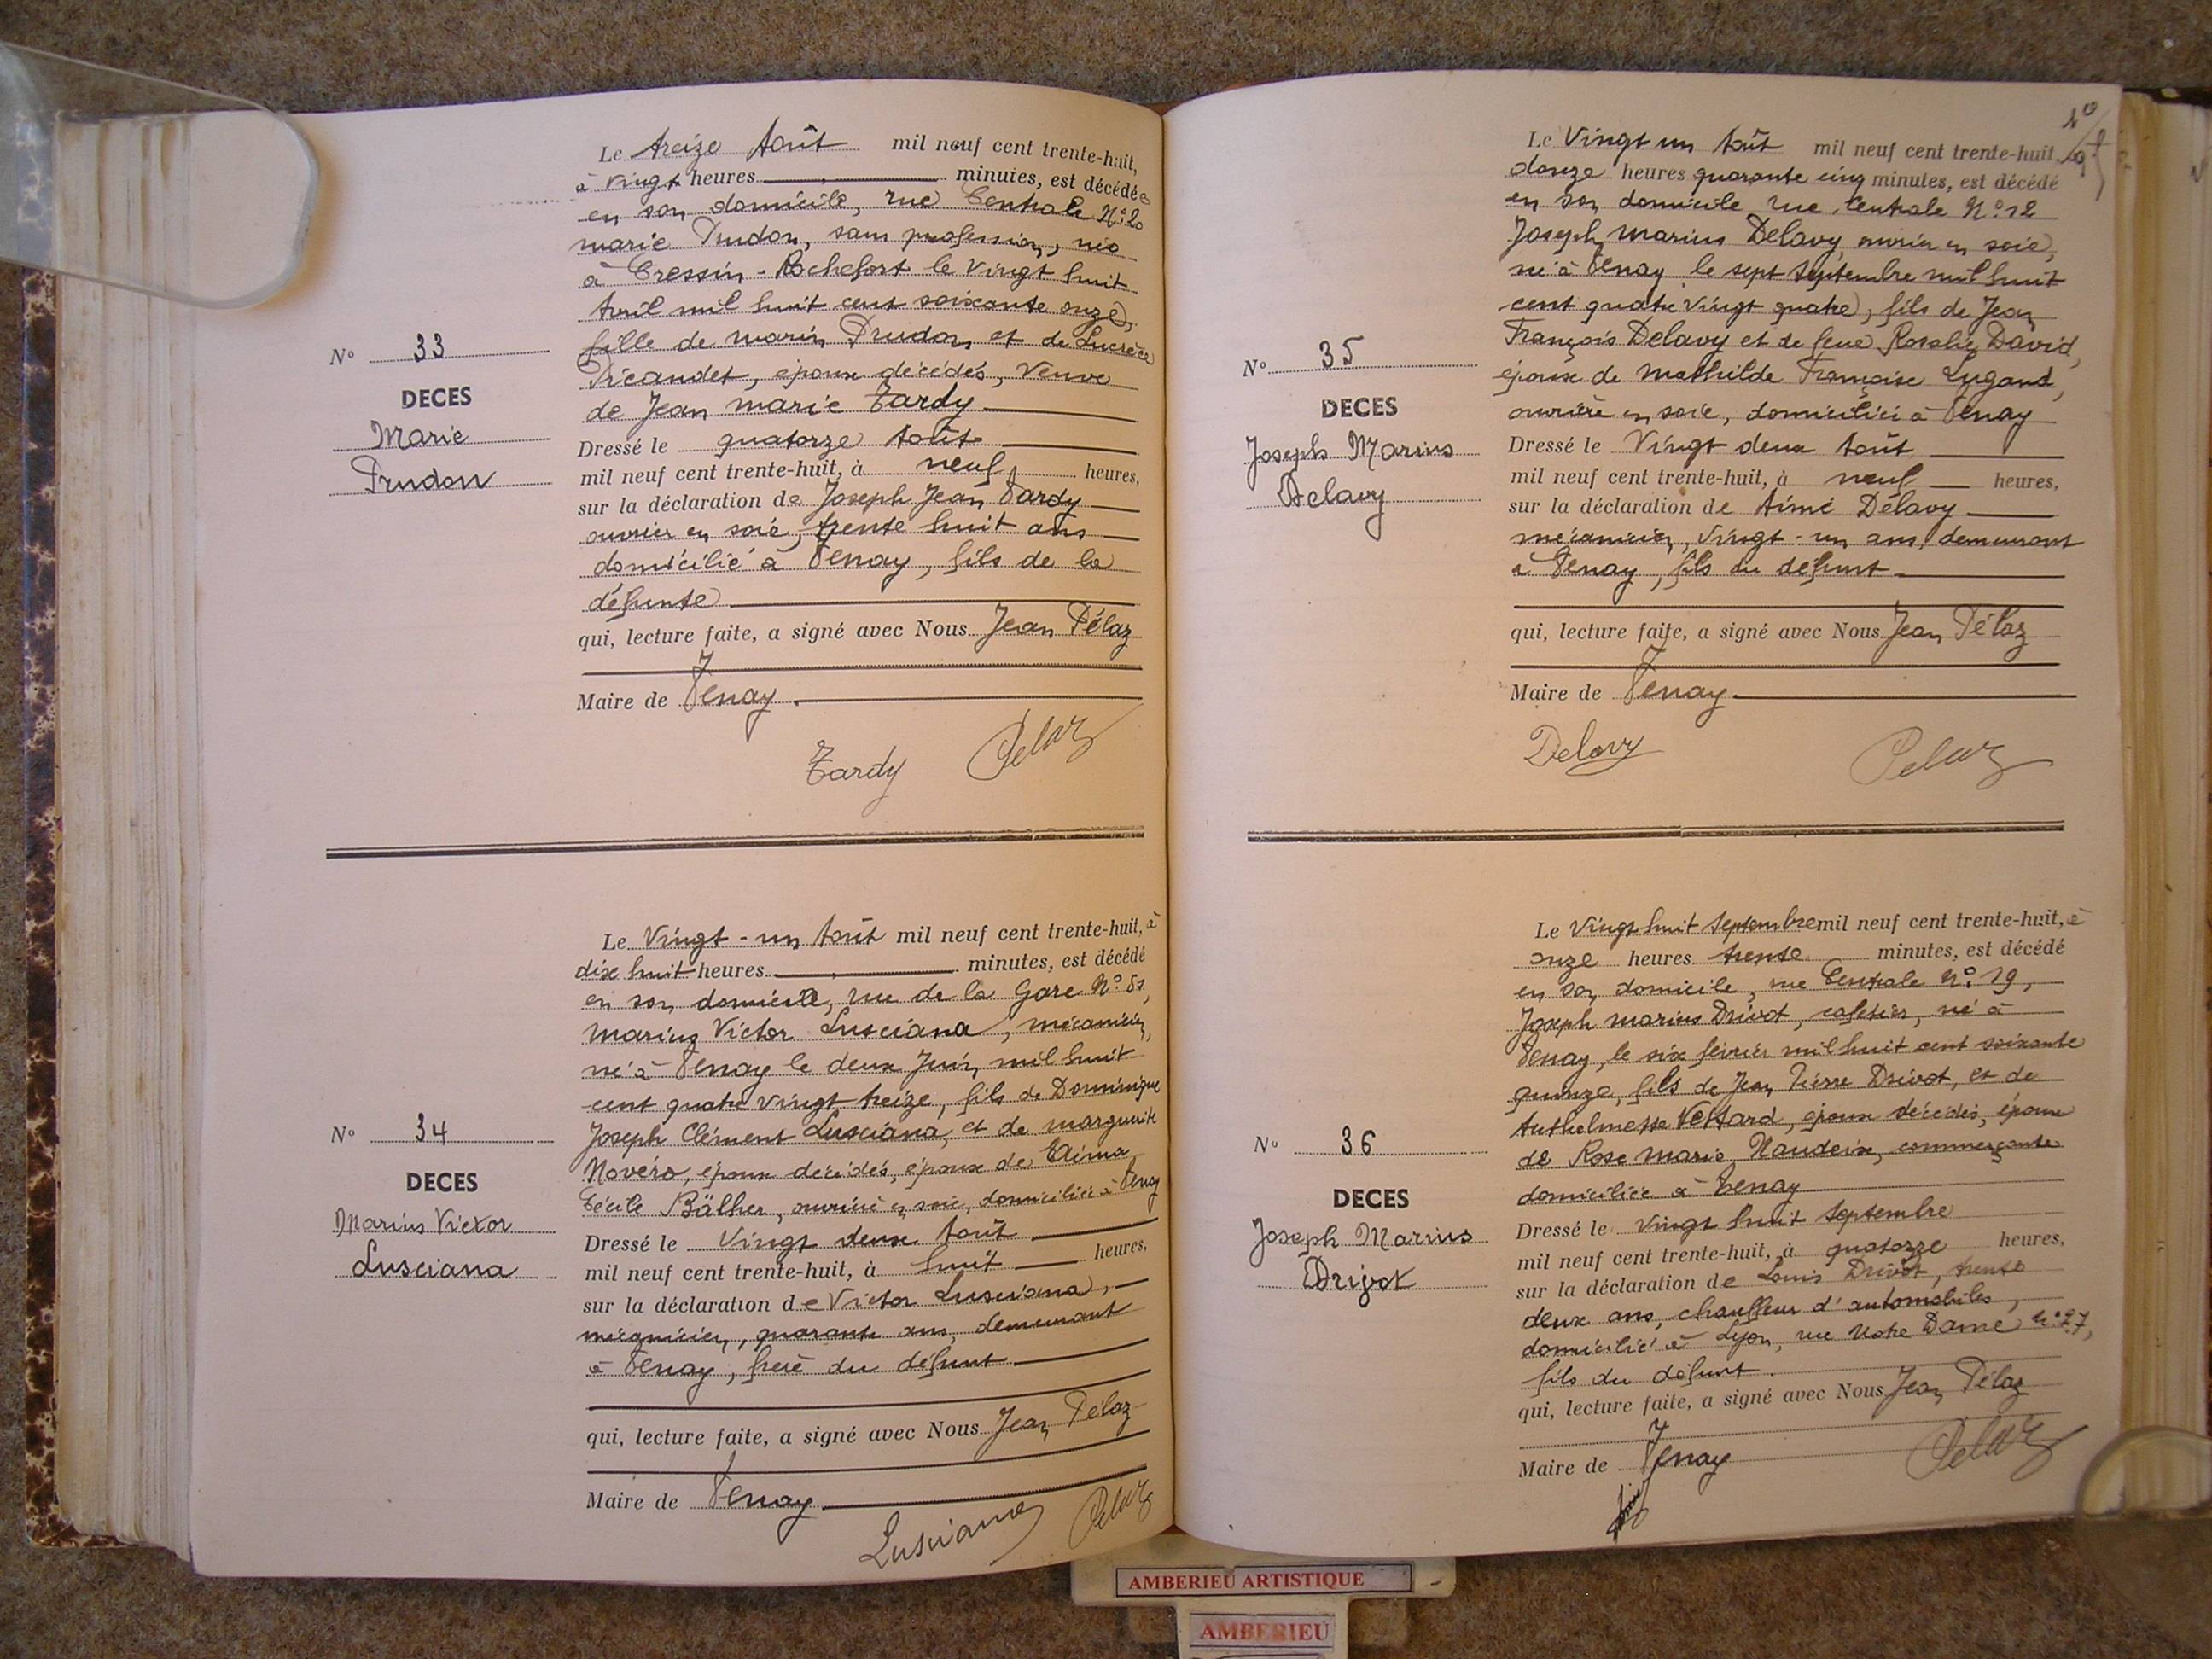 Le treize Août mil neuf cent trente-huit,
à vingt heures minutes, est décédée
en son domicile, rue Centrale N° 20
marie Prudon, sans profession, née
à Cressin-Rochefort le vingt huit
Avril mil huit cent soixante onze,
fille de marin Prudon et de Lucrèce
Picandet, époux décédés, Veuve
de Jean marie Tardy
N° 33
DECES
Marie
Prudon
Dressé le quatorze Août
mil neuf cent trente-huit, à neuf heures,
sur la déclaration de Joseph Jean Tardy
ouvrier en soie, trente huit ans
domicilié à Tenay, fils de la
défunte
qui, lecture faite, a signé avec Nous Jean Pélaz
Maire de Tenay.
Tardy Pelaz
Le Vingt-un Août mil neuf cent trente-huit, à
dix huit heures minutes, est décédé
en son domicile, rue de la Gare N°
marius Victor Lusciana, mécanicien,
né à Tenay le deux Juin mil huit
cent quatre vingt treize, fils de Dominique
Joseph Clément Lusciana, et de marguerite
Novéro, époux décédés, époux de
Cécile Bälher, ouvrière en soie, domiciliée à Tenay
N° 34
DECES
Marius Victor
Lusciana
Dressé le Vingt deux Août
mil neuf cent trente-huit, à huit heures,
sur la déclaration de Victor Lusciana,
mécanicien, quarante ans, demeurant
à Tenay, frère du défunt
qui, lecture faite, a signé avec Nous Jean Pélaz
Maire de Tenay
Lusciana Pelaz
Le Vingt un Août mil neuf cent trente-huit, à
douze heures quarante cinq minutes, est décédé
en son domicile rue Centrale N° 12
Joseph marius Delavy, ouvrier en soie,
né à Tenay le sept Septembre mil huit
cent quatre vingt quatre, fils de Jean
François Delavy et de feue Rosalie David,
époux de Mathilde Françoise Lugand,
ouvrière en soie, domiciliée à Tenay
N° 35
DECES
Joseph Marius
Delavy
Dressé le Vingt deux Août
mil neuf cent trente-huit, à neuf heures,
sur la déclaration de Aimé Délavy
mécanicien, vingt-un ans, demeurant
à Tenay, fils du défunt
qui, lecture faite, a signé avec Nous Jean Pélaz
Maire de Tenay
Delavy Pelaz
Le vingt huit Septembre mil neuf cent trente-huit, à
onze heures trente minutes, est décédé
en son domicile, rue Centrale N° 19,
Joseph marius Drivot, cafetier, né à
Tenay, le six février mil huit cent soixante
quinze, fils de Jean Pierre Drivot, et de
Anthelmette Vettard, époux décédés, époux
de Rose Marie Naudeix, commerçante
domiciliée à Tenay
N° 36
DECES
Joseph Marius
Drivot
Dressé le vingt huit Septembre
mil neuf cent trente-huit, à quatorze heures,
sur la déclaration de Louis Drivot, trente
deux ans, chauffeur d'automobiles,
domicilié à Lyon, rue Notre Dame N° 27,
fils du défunt.
qui, lecture faite, a signé avec Nous Jean Pélaz
Maire de Tenay Pelaz
AMBERIEU ARTISTIQUE
AMBERIEU